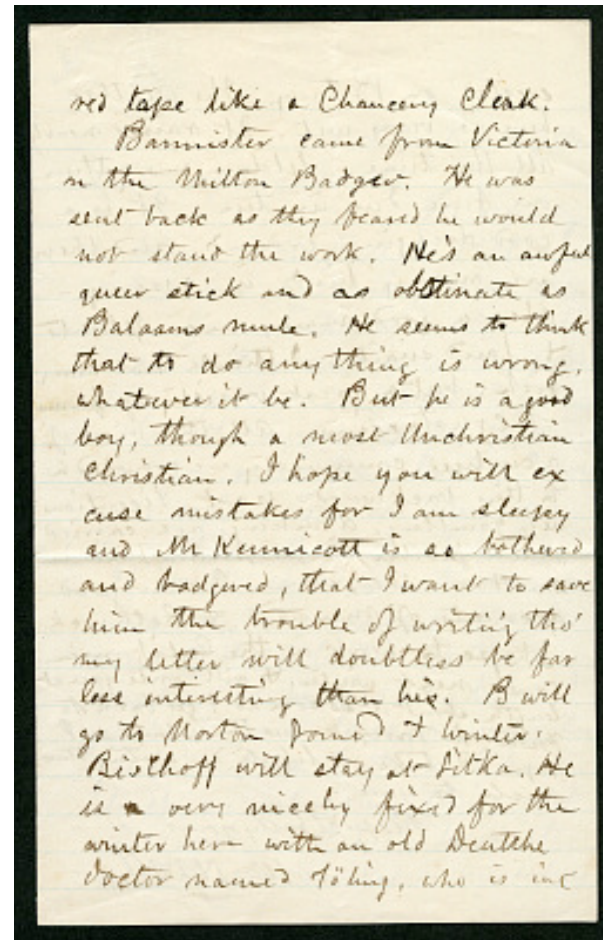 red tape like a Chancery Clerk.
Bannister came from Victoria
on the Milton Badger. He was
sent back as they feared he would
not stand the work. He's an awful
queer stick and as obstinate as
Balaams mule. He seems to think
that to do anything is wrong,
whatever it be. But he is a good
boy, though a most Unchristian
Christian. I hope you will ex
cuse mistakes for I am sleepy
and Mr Kennicott is so bothered
and badgered, that I want to save
him the trouble of writing tho'
my letter will doubtless be far
less interesting than his. B will
go to Norton Sound & winter.
Bischoff will stay at Sitka. He
is very nicely fixed for the
winter here with an old Deutche
doctor named who is